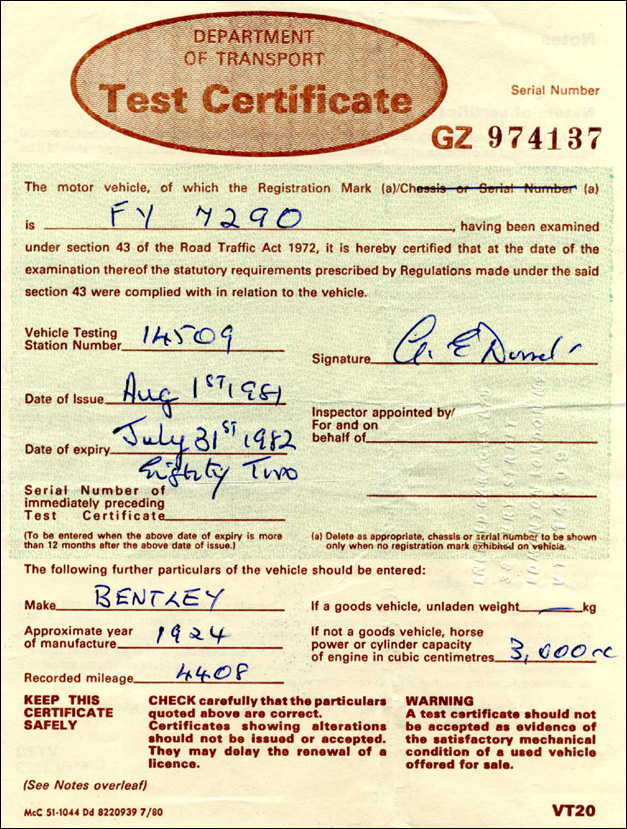 DEPARTMENT
OF TRANSPORT
Test Certificate
Serial Number
GZ 974137
The motor vehicle, of which the Registration Mark (a)/Chassis or Serial Number (a)
is FY 7290, having been examined
under section 43 of the Road Traffic Act 1972, it is hereby certified that at the date of the
examination thereof the statutory requirements prescribed by Regulations made under the said
section 43 were complied with in relation to the vehicle.
Vehicle Testing
Station Number 14509
Signature
Date of Issue Aug 1ST 1981
Date of expiry July 31ST 1982
Eighty Two
Inspector appointed by/
For and on
behalf of
Serial Number of
immediately preceding
Test Certificate
(To be entered when the above date of expiry is more
than 12 months after the above date of issue.)
(a) Delete as appropriate, chassis or serial number to be shown
only when no registration mark exhibited on vehicle.
The following further particulars of the vehicle should be entered:
Make BENTLEY
If a goods vehicle, unladen weight — kg
Approximate year
of manufacture 1924
If not a goods vehicle, horse
power or cylinder capacity
of engine in cubic centimetres 3,000cc
Recorded mileage 4408
KEEP THIS
CERTIFICATE
SAFELY
CHECK carefully that the particulars
quoted above are correct.
Certificates showing alterations
should not be issued or accepted.
They may delay the renewal of a
licence.
WARNING
A test certificate should not
be accepted as evidence of
the satisfactory mechanical
condition of a used vehicle
offered for sale.
(See Notes overleaf)
McC 51-1044 Dd 8220939 7/80
VT20